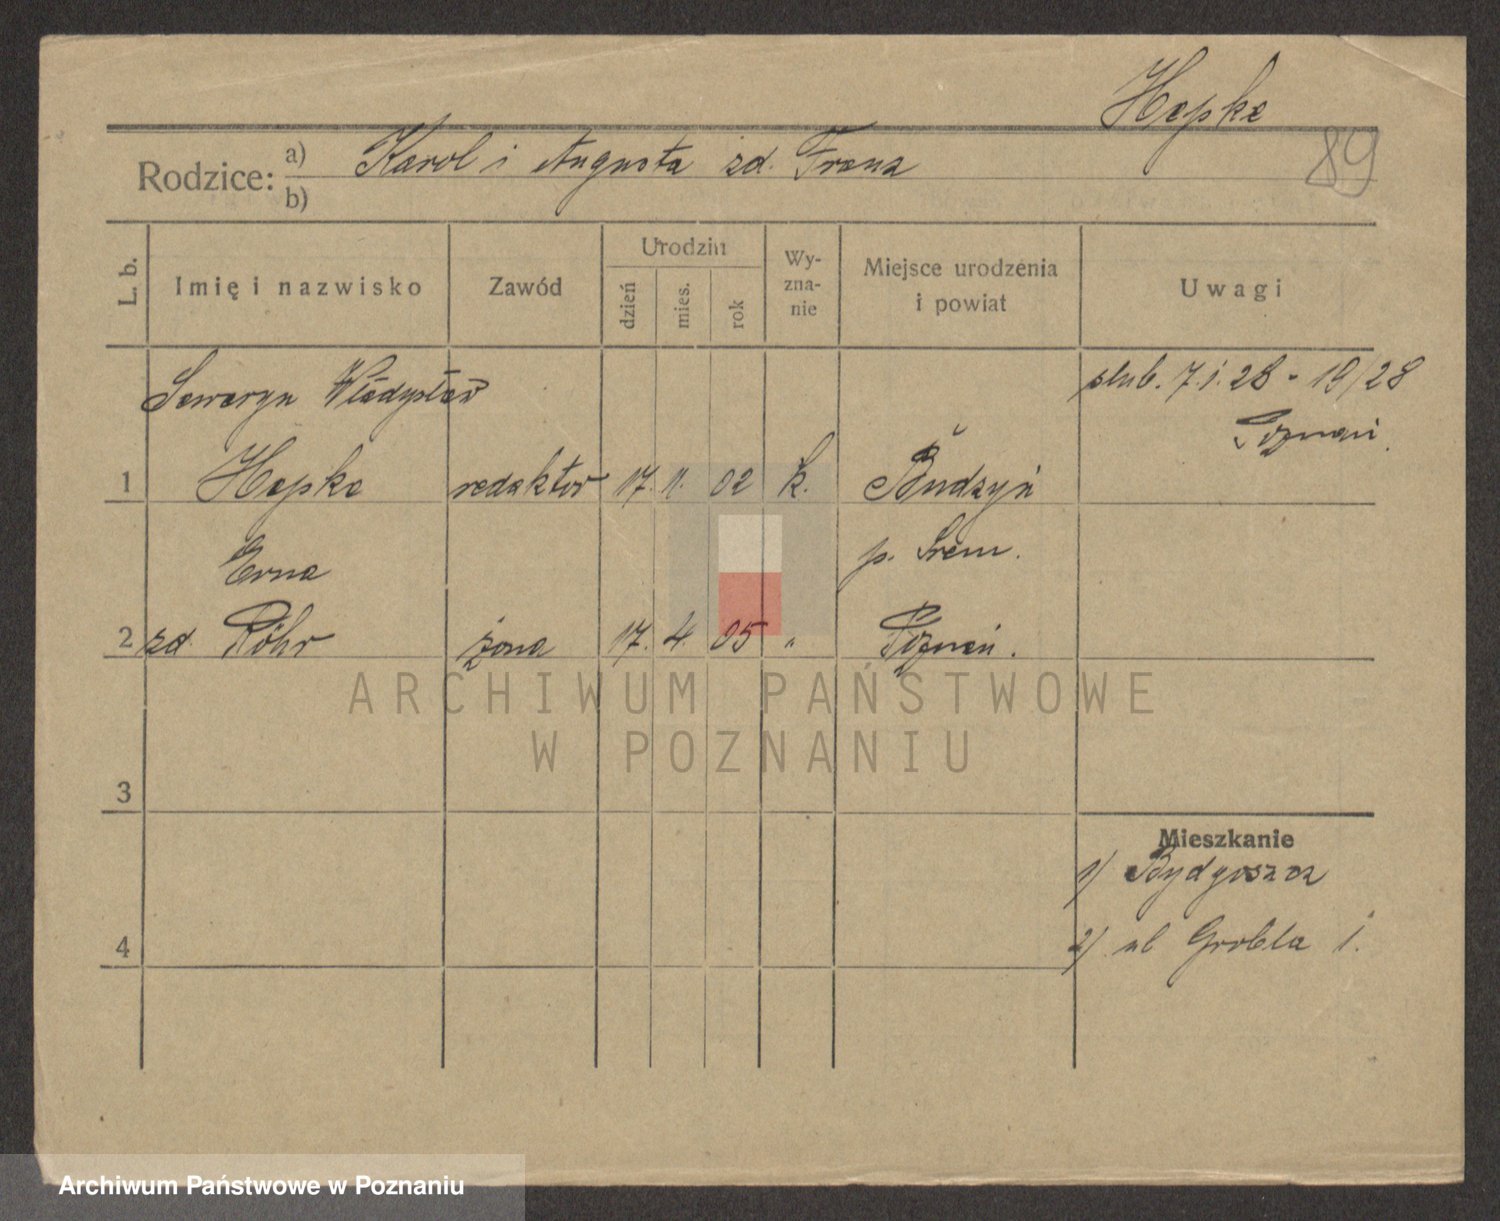 Hepke
89
Rodzice: a) Karol i Augusta zd. Franz
b)
L. b. Imię i nazwisko Zawód Urodzin dzień mies. rok Wyznanie Miejsce urodzenia i powiat Uwagi
Seweryn Władysław ślub. 7.i.28 - 19/28
Poznań.
1 Hepke redaktor 17. 11. 02 k. Budzyń
Erna p. Śrem.
2 zd. Röhr żona 17. 4. 05 " Poznań.
ARCHIWUM PAŃSTWOWE
W POZNANIU
3
Mieszkanie
1) Bydgoszcz
4 2) ul Grobla 1.
Archiwum Państwowe w Poznaniu